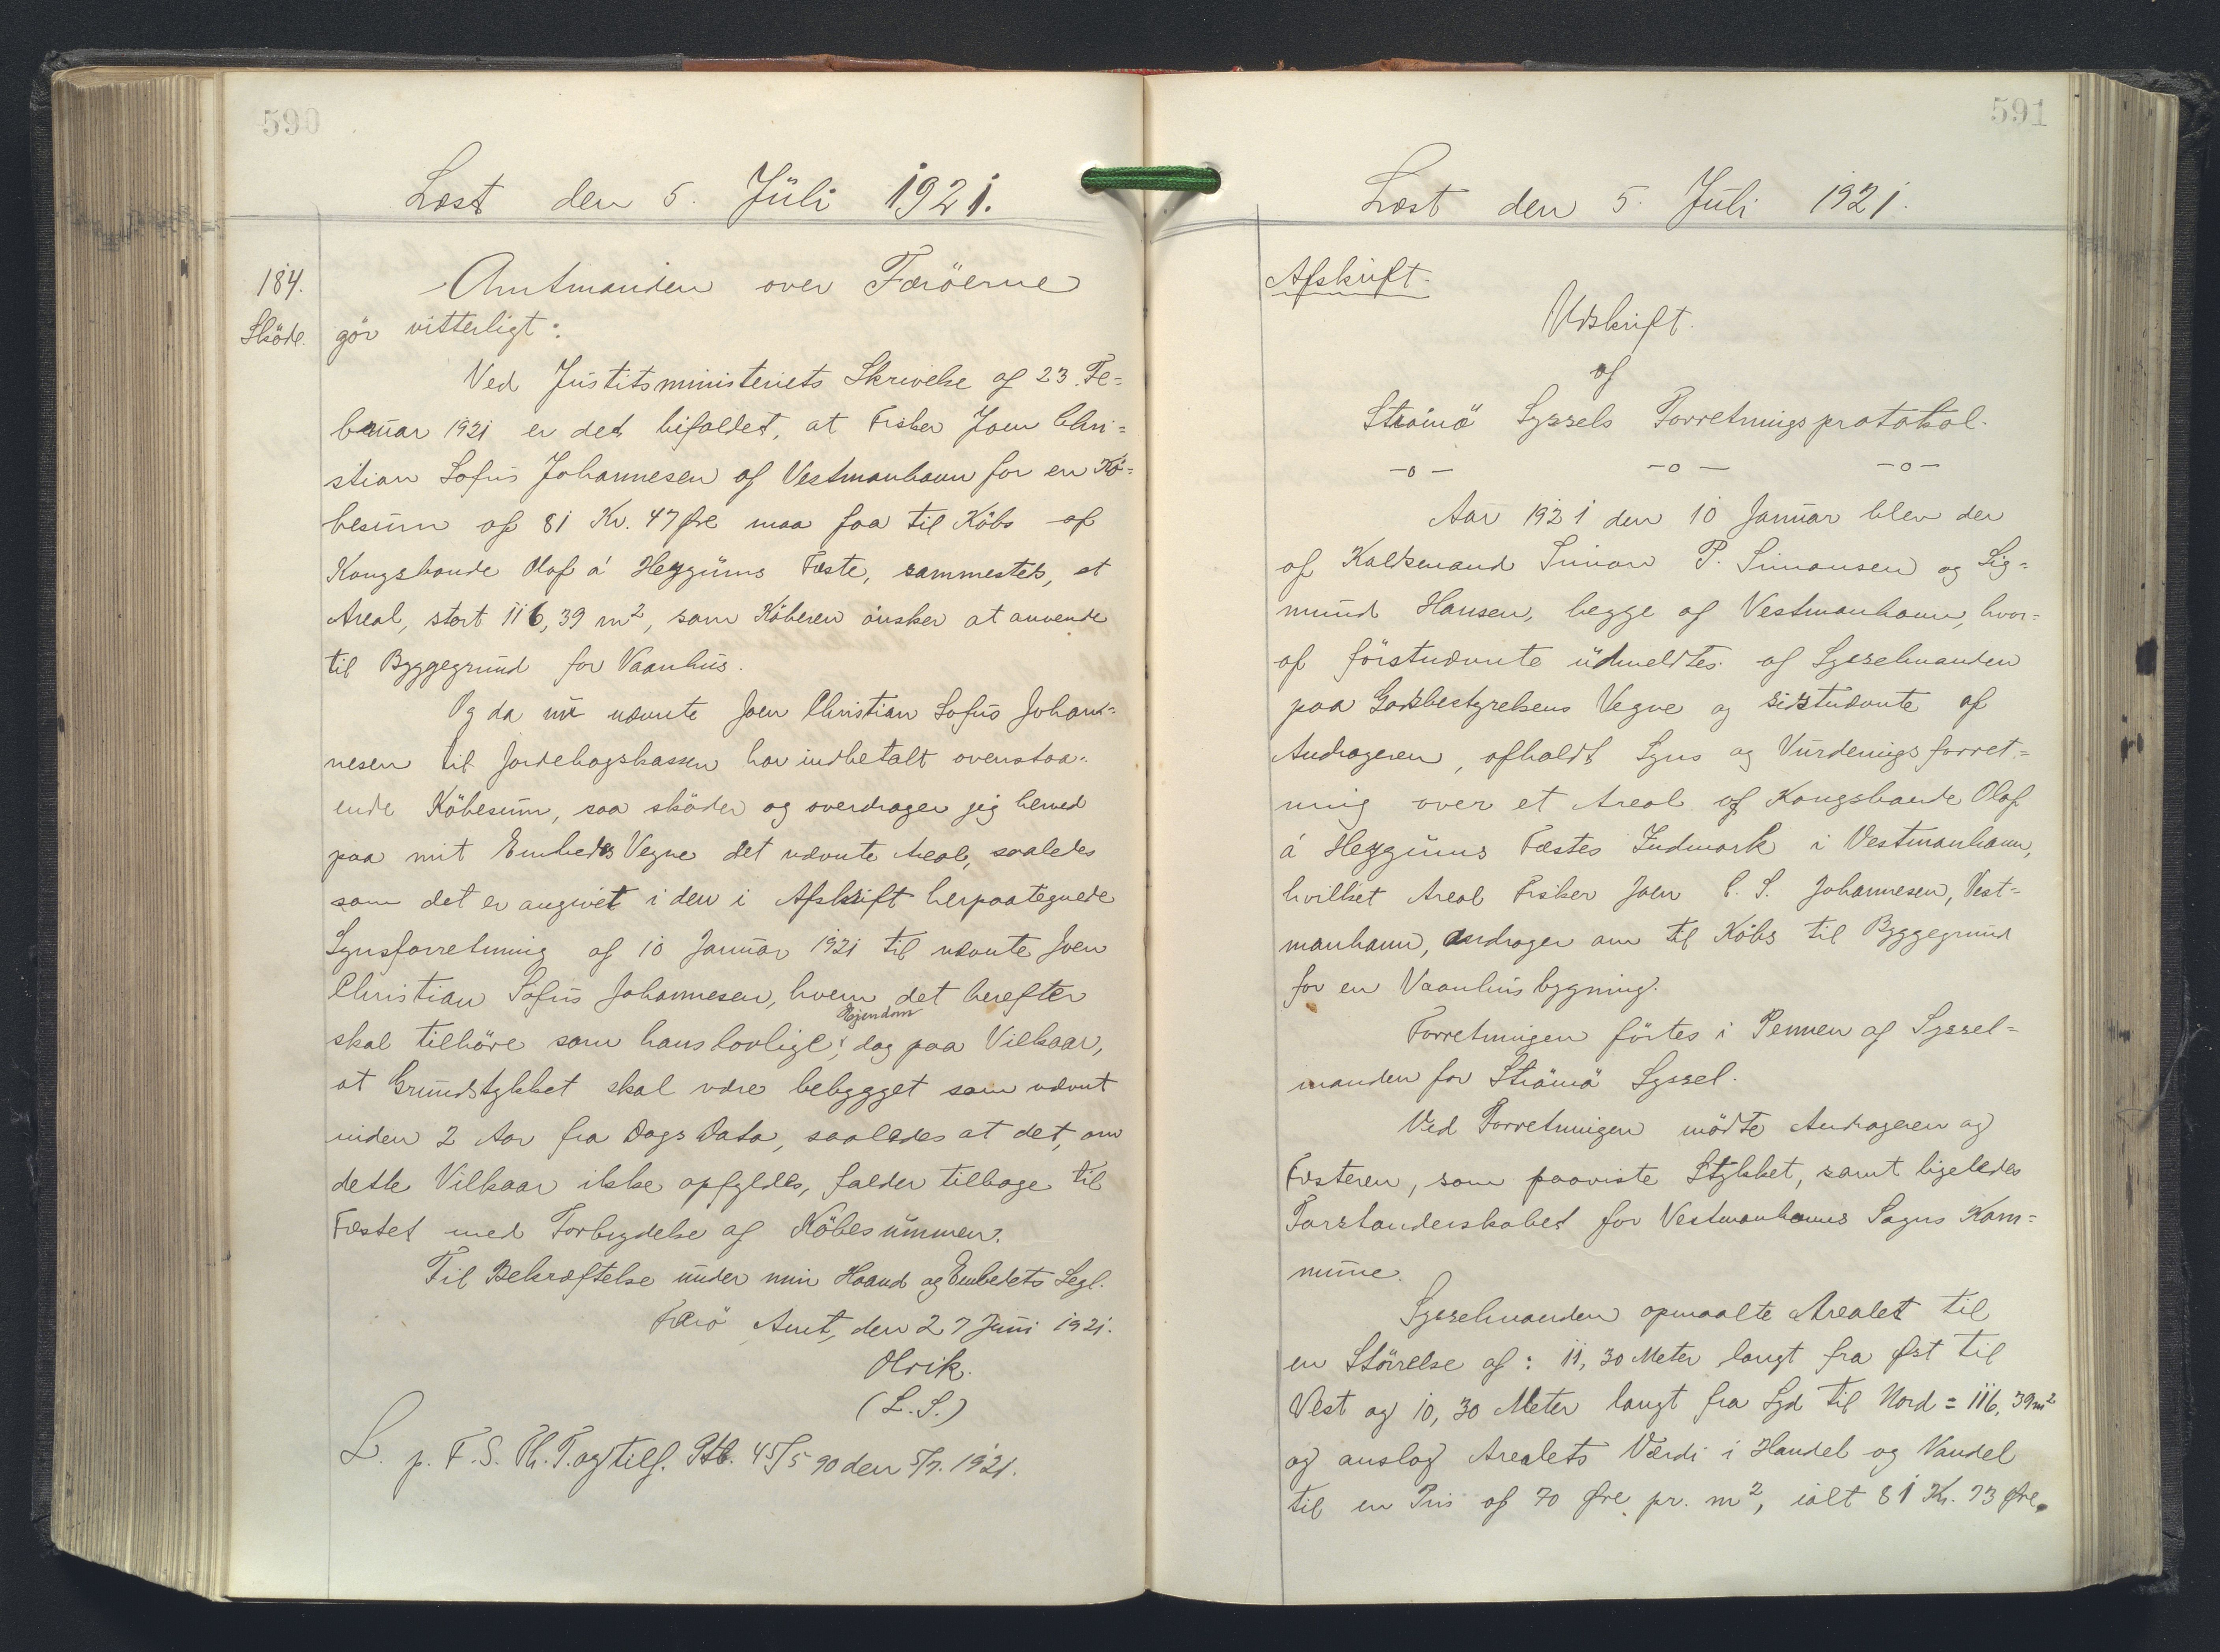 590
Læst den 5. Juli 1921.
184.
Sköde.
Amtmanden over Færöerne
gör vitterligt:
Ved Justitsministeriets Skrivelse af 23. Fe=
bruar 1921 er det bifaldet, at Fisker Joen Chri=
stian Sofus Johannesen af Vestmanhavn for en Kö=
besum af 81 Kr. 47 Øre maa faa til Köbs af
Kongsbonde Olaf á Heygums Fæste, sammesteds, et
Areal, stort 116,39 m², som Köberen önsker at anvende
til Byggegrund for Vaanhus.
Og da nu nævnte Joen Christian Sofus Johan=
nesen til Jordebogskassen har indbetalt ovenstaa=
ende Köbesum, saa sköder og overdrager jeg herved
paa mit Embeds Vegne det nævnte Areal, saaledes
som det er angivet i den i Afskrift herpaategnede
Synsforretning af 10 Januar 1921 til nævnte Joen
Christian Sofus Johannesen, hvem det herefter
skal tilhöre som hans lovlige Ejendom, dog paa Vilkaar,
at Grundstykket skal være bebygget som nævnt
inden 2 Aar fra Dags Dato, saaledes at det, om
dette Vilkaar ikke opfyldes, falder tilbage til
Fæstet med Forbrydelse af Köbesummen.
Til Bekræftelse under min Haand og Embedets Segl.
Færö Amt, den 27 Juni 1921.
Olrik.
(L.S.)
L. p. F. S. Th. T. og tilf. Ptb. 45/5 90 den 5/7. 1921.
591
Læst den 5. Juli 1921.
Afskrift.
Udskrift
af
Strömö Syssels Forretningsprotokol.
-o- -o- -o-
Aar 1921 den 10 Januar blev der
af Kaldsmand Simon P. Simonsen og Sig=
mund Hansen, begge af Vestmanhavn, hvor=
af förstnævnte udmeldtes af Sysselmanden
paa Godsbestyrelsens Vegne og sidstnævnte af
Andrageren, afholdt Syns og Vurderingsforret=
ning over et Areal af Kongsbonde Olaf
á Heygums Fæstes Indmark i Vestmanhavn,
hvilket Areal Fisker Joen C. S. Johannesen, Vest=
manhavn, andrager om til Köbs til Byggegrund
for en Vaanhusbygning.
Forretningen förtes i Pennen af Syssel=
manden for Strömö Syssel.
Ved Forretningen mödte Andrageren og
Fæsteren, som paaviste Stykket, samt ligeledes
Forstanderskabet for Vestmanhavns Sogns Kom=
mune.
Sysselmanden opmaalte Arealet til
en Störrelse af: 11,30 Meter langt fra Øst til
Vest og 10,30 Meter langt fra Syd til Nord = 116,39 m²
og anslog Arealets Værdi i Handel og Vandel
til en Pris af 70 Øre pr. m², ialt 81 Kr. 73 Øre.